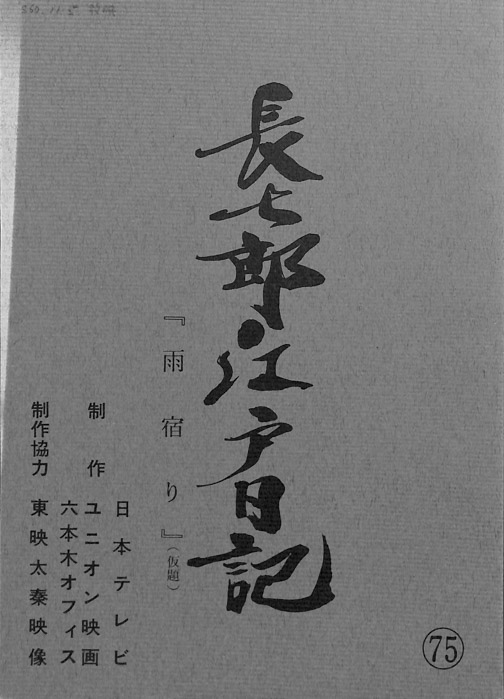 S60.11.5 放映
長七郎江戸日記
『雨宿り』(仮題)
日本テレビ
制作 ユニオン映画
六本木オフィス
制作協力 東映太秦映像
75